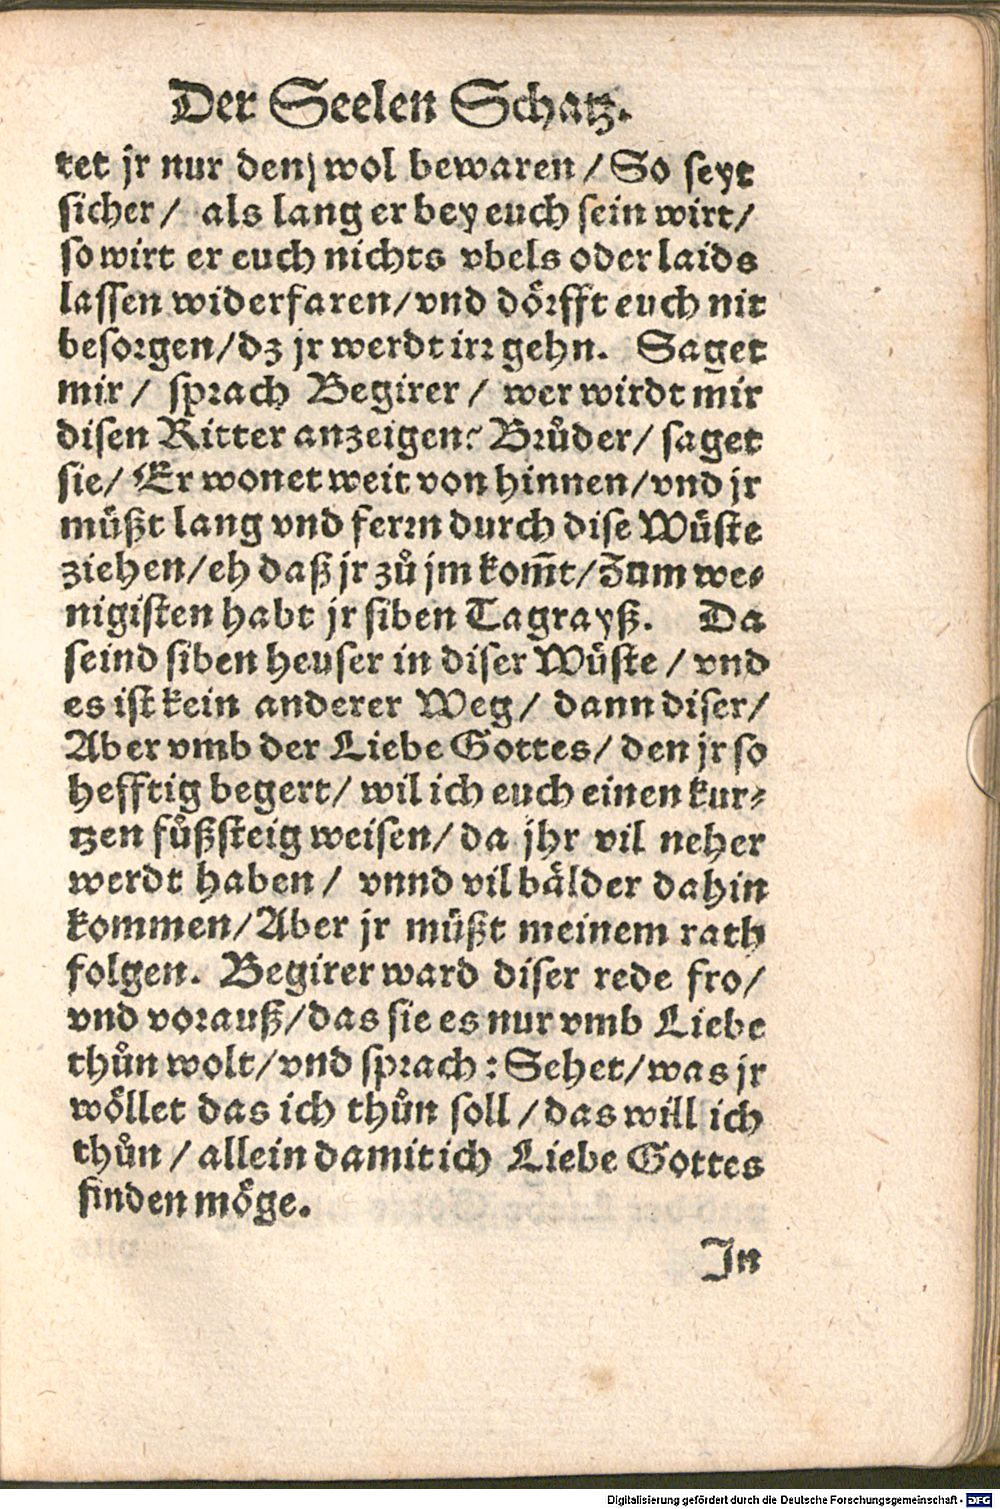 Der Seelen Schatz.
tet jr nur den wol bewaren / So seyt
sicher / als lang er bey euch sein wirt /
so wirt er euch nichts vbels oder laids
lassen widerfaren / vnd dörfft euch nit
besorgen / dz jr werdt irr gehn. Saget
mir / sprach Begirer / wer wirdt mir
disen Ritter anzeigen? Brůder / saget
sie / Er wonet weit von hinnen / vnd jr
müßt lang vnd ferrn durch dise Wüste
ziehen / eh daß jr zů jm kom̃t / Zum we-
nigisten habt jr siben Tagrayß. Da
seind siben heuser in diser Wüste / vnd
es ist kein anderer Weg / dann diser /
Aber vmb der Liebe Gottes / den jr so
hefftig begert / wil ich euch einen kur-
tzen fůßsteig weisen / da jhr vil neher
werdt haben / vnnd vil bälder dahin
kommen / Aber jr müßt meinem rath
folgen. Begirer ward diser rede fro /
vnd vorauß / das sie es nur vmb Liebe
thůn wolt / vnd sprach : Sehet / was jr
wöllet das ich thůn soll / das will ich
thůn / allein damit ich Liebe Gottes
finden möge.
In
Digitalisierung gefördert durch die Deutsche Forschungsgemeinschaft - DFG